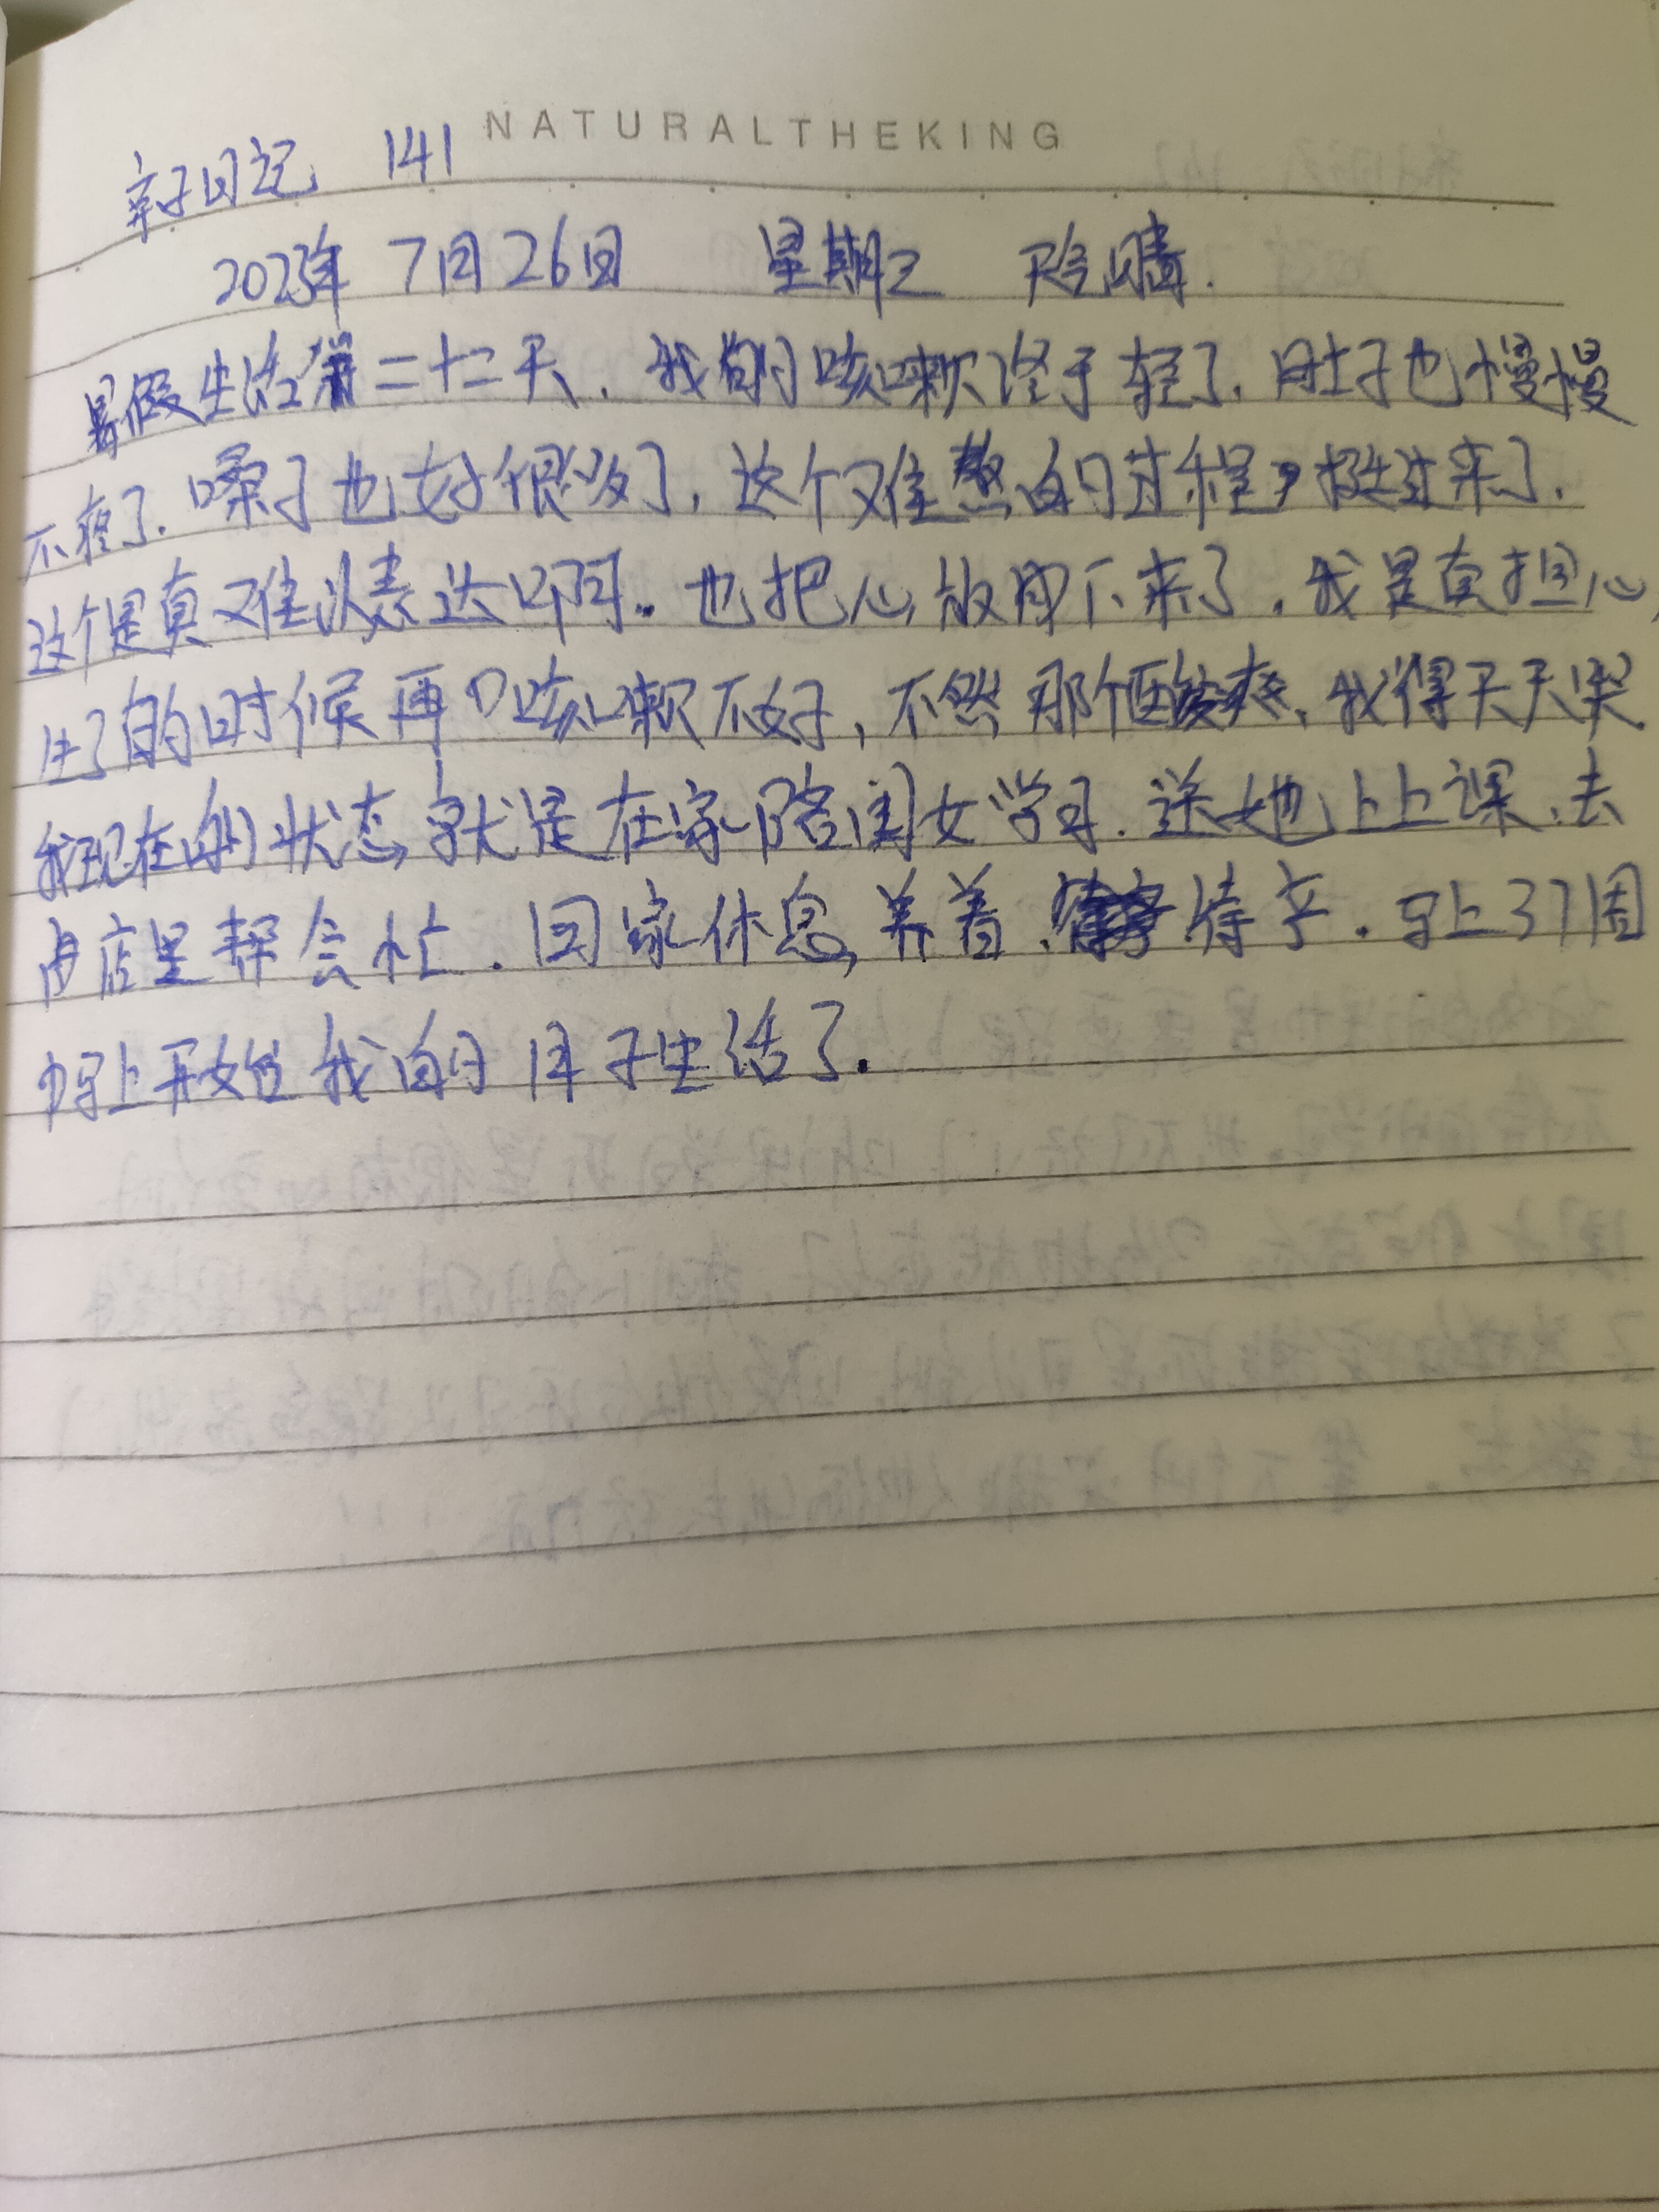 NATURALTHEKING
亲子日记 141
2023年 7月26日 星期三 晴.
暑假生活第二十二天，我的咳嗽终于轻了，肚子也慢慢
不疼了，嗓子也好很多了，这个难熬的过程挺过来了，
这个是真难以表达啊。也把心放下来了，我是真担心，
生了的时候再咳嗽不好，不然那个酸爽，我得天天哭
我现在的状态，就是在家陪闺女学习，送她上上课，去
店里帮会忙，回家休息，养着，待产，马上37周
马上开始我的月子生活了.